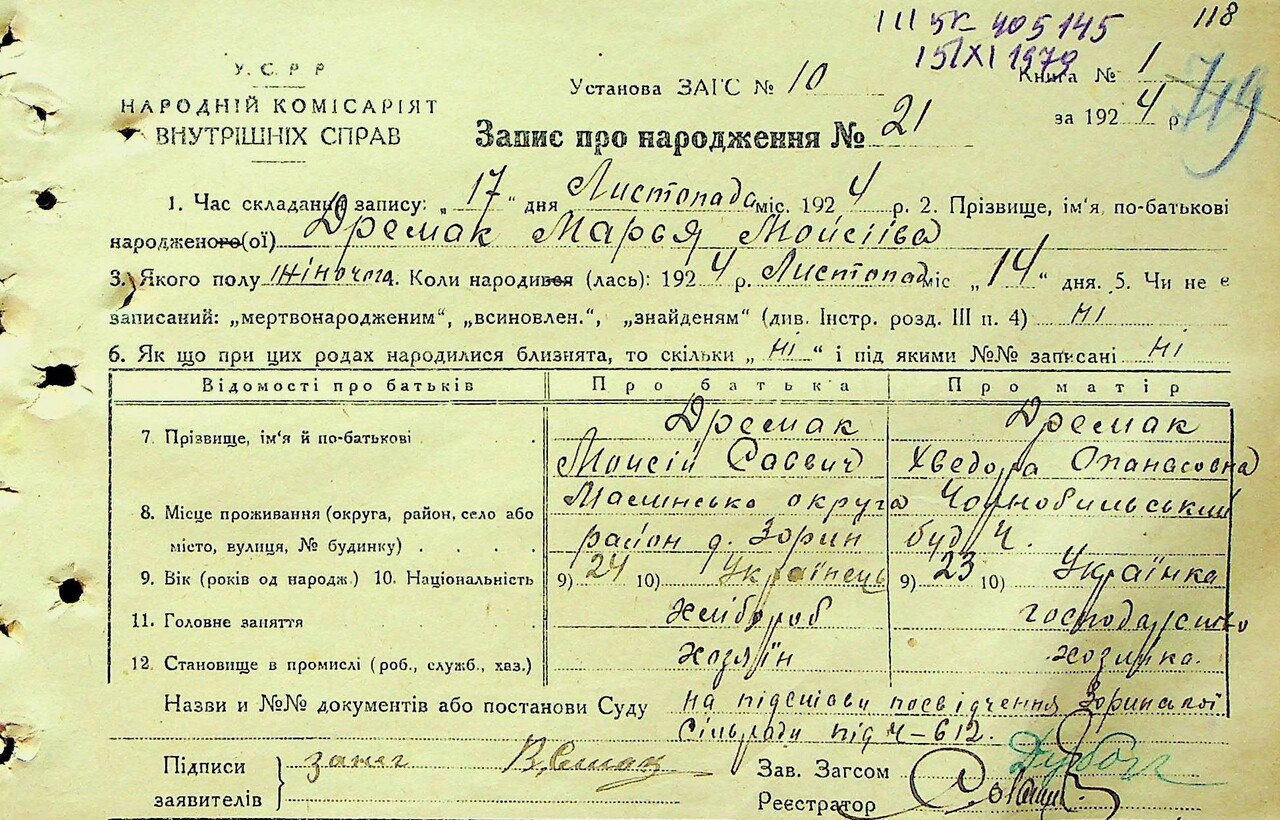 III БК 405145
15/XI 1979
118
У. С. Р. Р
НАРОДНІЙ КОМІСАРІЯТ
ВНУТРІШНІХ СПРАВ
Установа ЗАГС № 10
Книга № 1
за 1924 р.
719
Запис про народження № 21
1. Час складання запису: „17“ дня Листопада міс. 1924 р. 2. Прізвище, ім'я, по-батькові
народженого(ої) Дремак Марья Мойсіїва
3. Якого полу жіночога. Коли народився (лась): 1924 р. Листопад міс „14“ дня. 5. Чи не є
записаний: „мертвонародженим“, „всиновлен.“, „знайденям“ (див. Інстр. розд. III п. 4) ні
6. Як що при цих родах народилися близнята, то скільки „ні“ і під якими №№ записані ні
Відомості про батьків Про батька Про матір
7. Прізвище, ім'я й по-батькові Дремак Дремак
Мойсій Саввич Хведора Опанасовна
8. Місце проживання (округа, район, село або Малинсько округа Чорнобильський
місто, вулиця, № будинку) район д. Зорин буд Ч.
9. Вік (років од народж.) 10. Національність 9) 24 10) Українець 9) 23 10) Українка
11. Головне заняття Хлібороб господарство
12. Становище в промислі (роб., служб., хаз.) хозяїн хозяйка.
Назви и №№ документів або постанови Суду на підставі посвідчення Зоринської
Сільради під Ч-612.
Підписи
заявителів
Зав. Загсом
Реєстратор